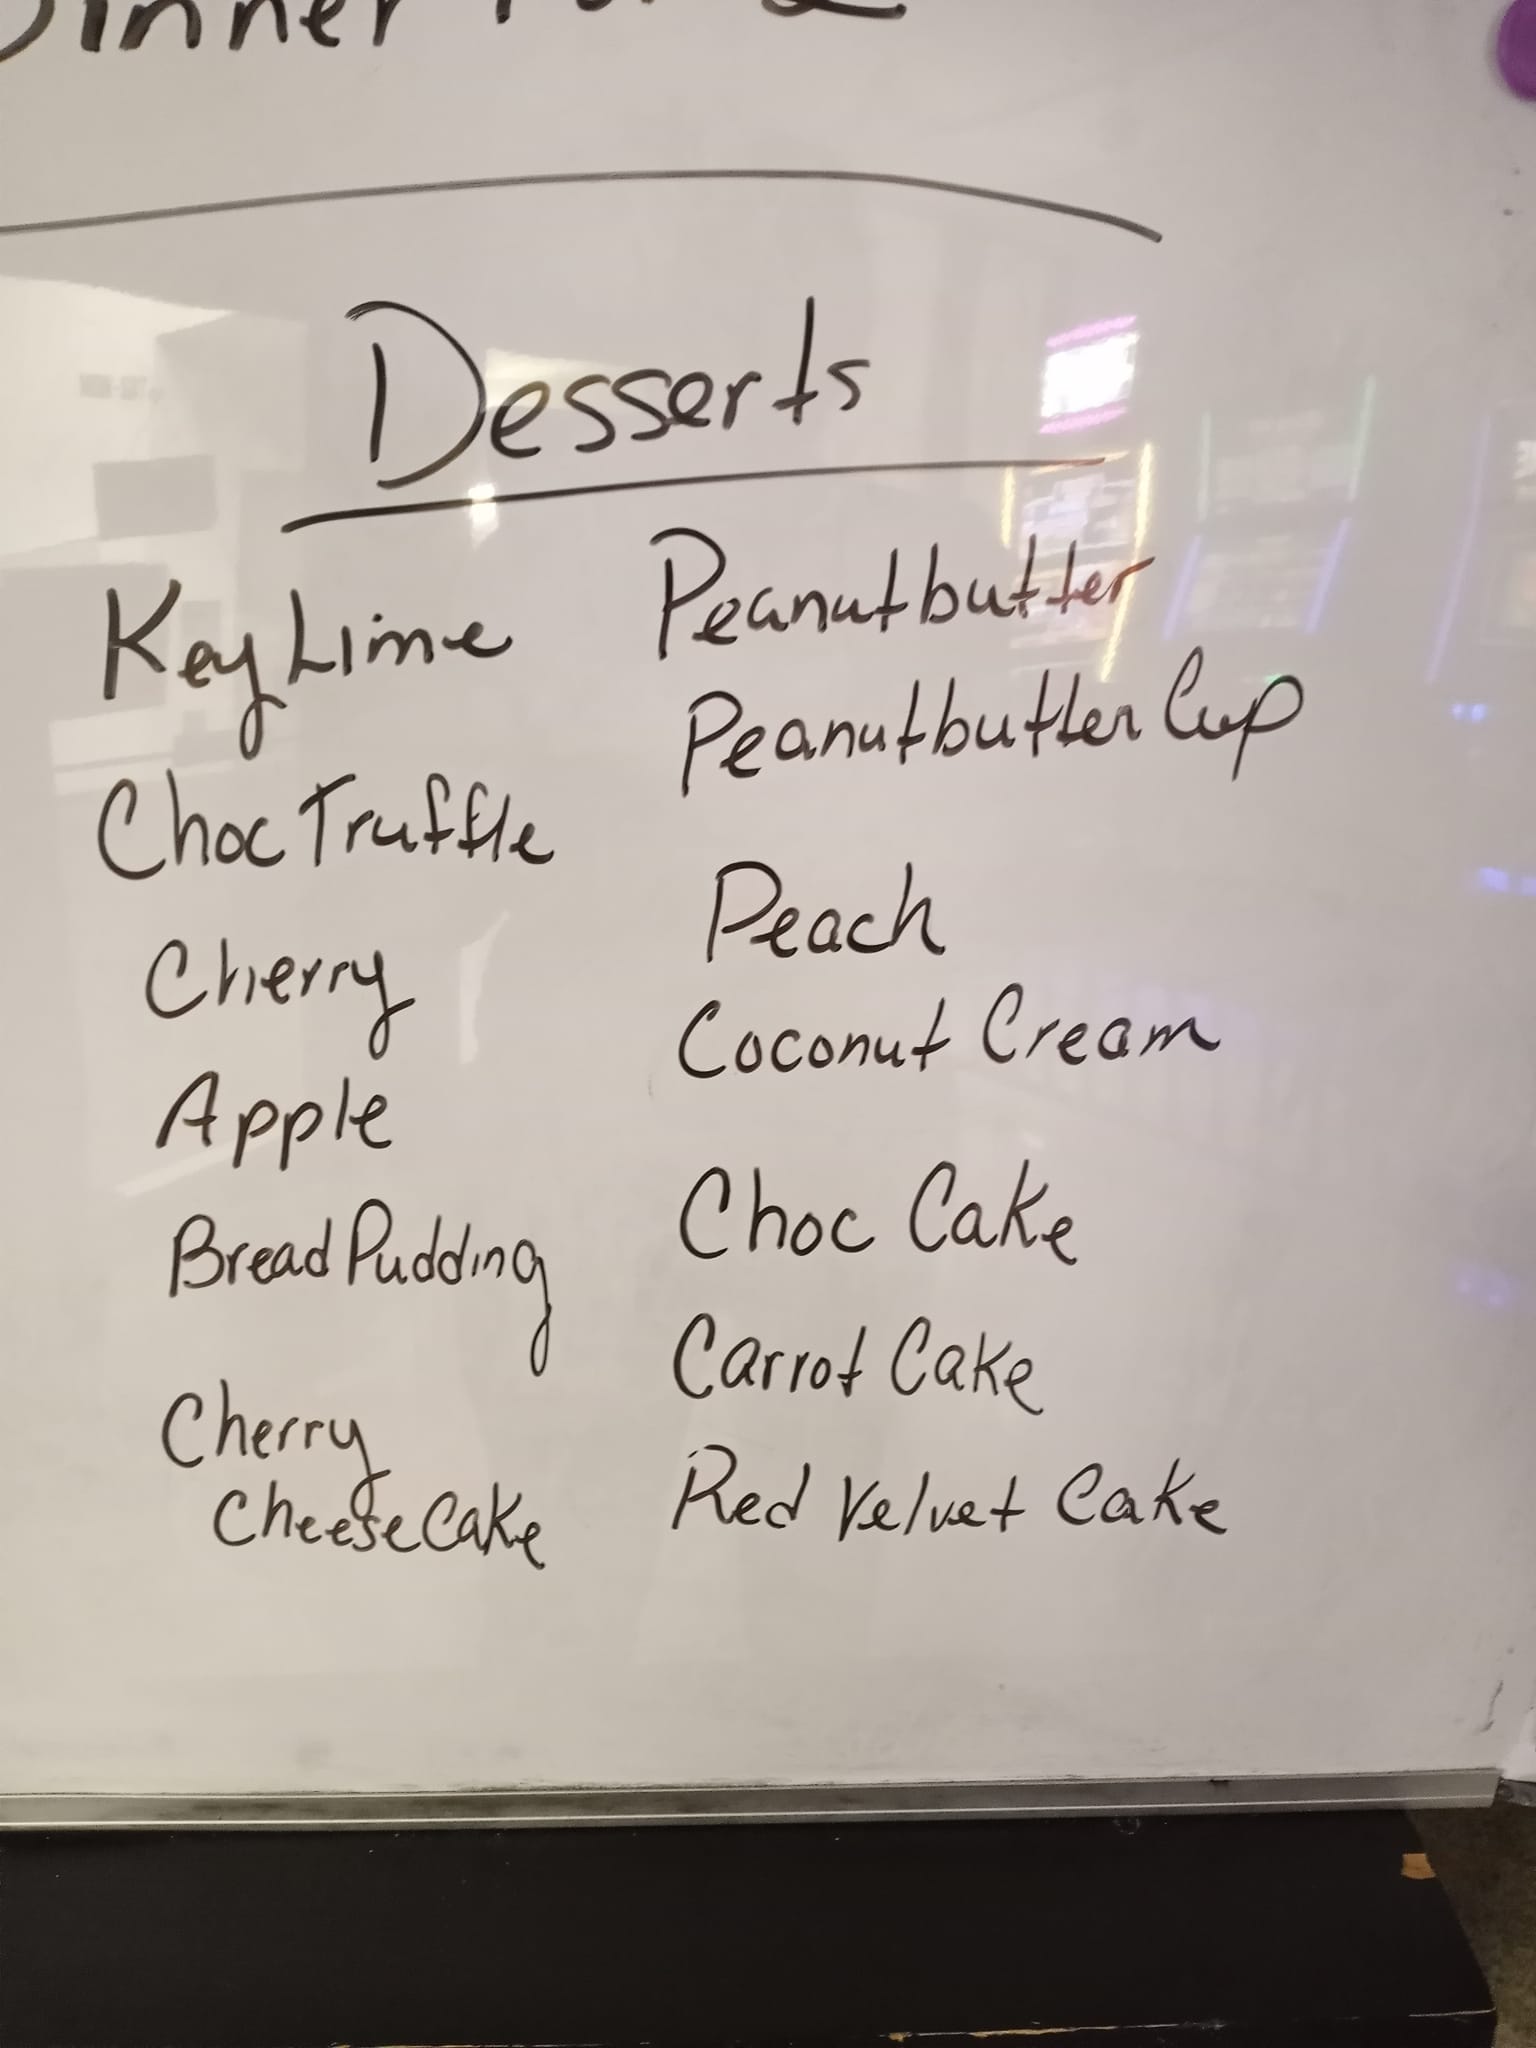 Dinner For 2
Desserts
Key Lime
Choc Truffle
Cherry
Apple
Bread Pudding
Cherry
Cheese Cake
Peanutbutter
Peanutbutter Cup
Peach
Coconut Cream
Choc Cake
Carrot Cake
Red Velvet Cake